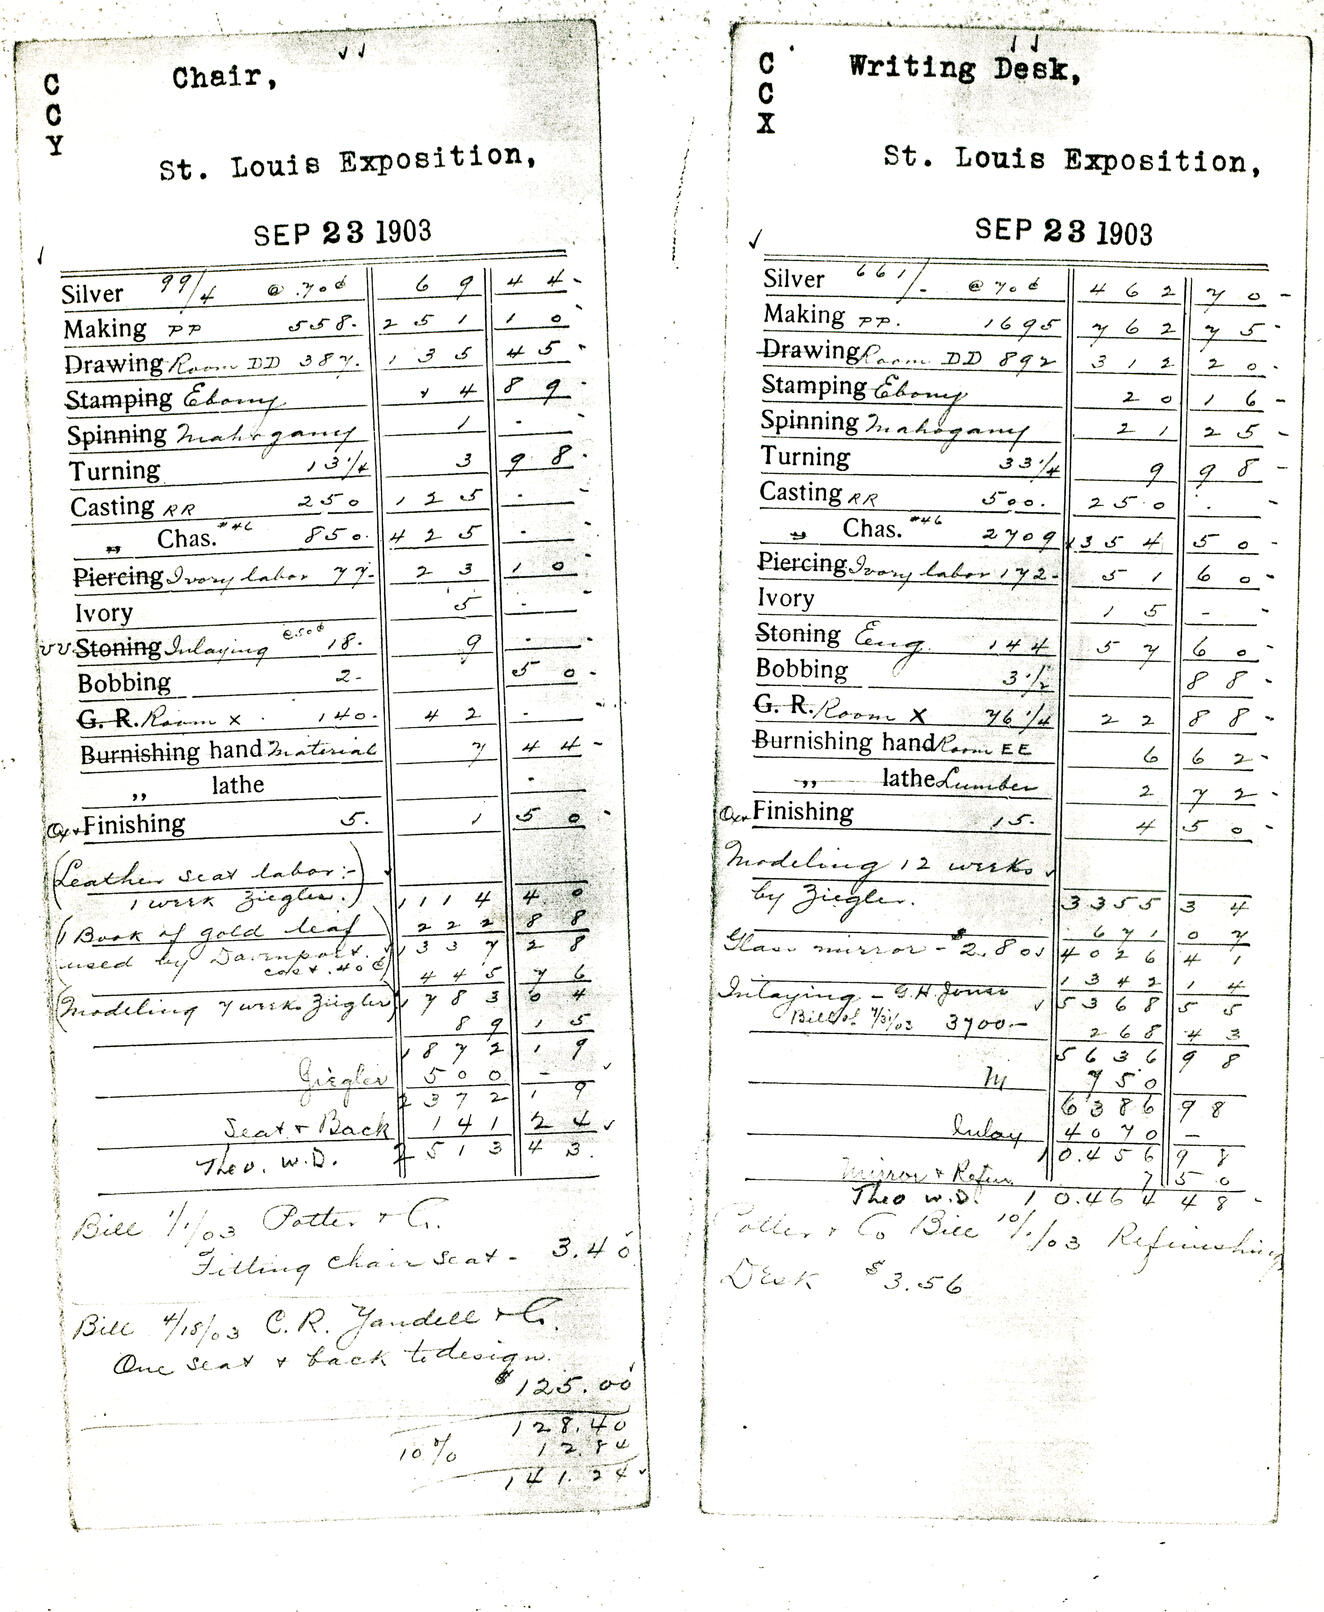 C
C
Y
Chair,
St. Louis Exposition,
SEP 23 1903
Silver 99/4 @ .70¢ 69 44
Making PP 558. 251 10
Drawing Room DD 387. 135 45
Stamping Ebony 14 89
Spinning Mahogany 1 -
Turning 13 1/4 3 98
Casting RR 250 125 -
„ Chas. #46 850. 425 -
Piercing Ivory labor 77- 23 10
Ivory 5 -
Stoning Inlaying @50¢ 18. 9 -
Bobbing 2- 50
G. R. Room X 140. 42 -
Burnishing hand Material 7 44
„ lathe -
Ox + Finishing 5. 1 50
(Leather seat labor:-
1 week Ziegler.) 1114 40
(1 Book of gold leaf 222 88
used by Davenport. 1337 28
cost .40¢) 445 76
(Modeling 7 weeks Ziegler) 1783 04
89 15
1872 19
Ziegler 500 -
2372 19
Seat & Back 141 24
Theo. W.D. 2513 43
Bill 1/1/03 Potter & Co.
Fitting chair seat - 3.40
Bill 4/15/03 C. R. Yandell & Co.
One seat & back to design.
$125.00
128.40
10% 12.84
141.24
C
C
X
Writing Desk,
St. Louis Exposition,
SEP 23 1903
Silver 661/- @ 70¢ 462 70
Making PP. 1695 762 75
Drawing Room DD 892 312 20
Stamping Ebony 20 16
Spinning Mahogany 21 25
Turning 33 1/4 9 98
Casting RR 500. 250 .
„ Chas. #46 2709 1354 50
Piercing Ivory labor 172- 51 60
Ivory 15 -
Stoning Eng. 144 57 60
Bobbing 3 1/2 88
G. R. Room X 76 1/4 22 88
Burnishing hand Room EE 6 62
„ lathe Lumber 2 72
Ox + Finishing 15. 4 50
Modeling 12 weeks
by Ziegler. 3355 34
671 07
Glass mirror - $2.80 4026 41
1342 14
Inlaying - G. H. Jones 5368 55
Bill of 7/31/03 3700.- 268 43
5636 98
M 750
6386 98
Inlay 4070 -
10.456 98
Mirror & Refin 7 50
Theo W.D. 10.464 48
Potter & Co Bill 10/1/03 Refinishing
Desk $3.56